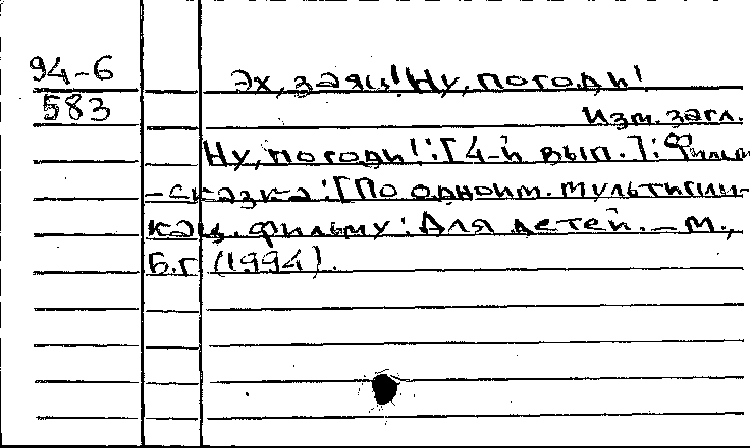 94-6
583
Эх, заяц! Ну, погоди!
Изм. загл.
Ну, погоди!: [4-й вып.]: Фильм
-сказка: [По одноим. мультипли-
кац. фильму: Для детей. – М.,
Б.г. (1994).